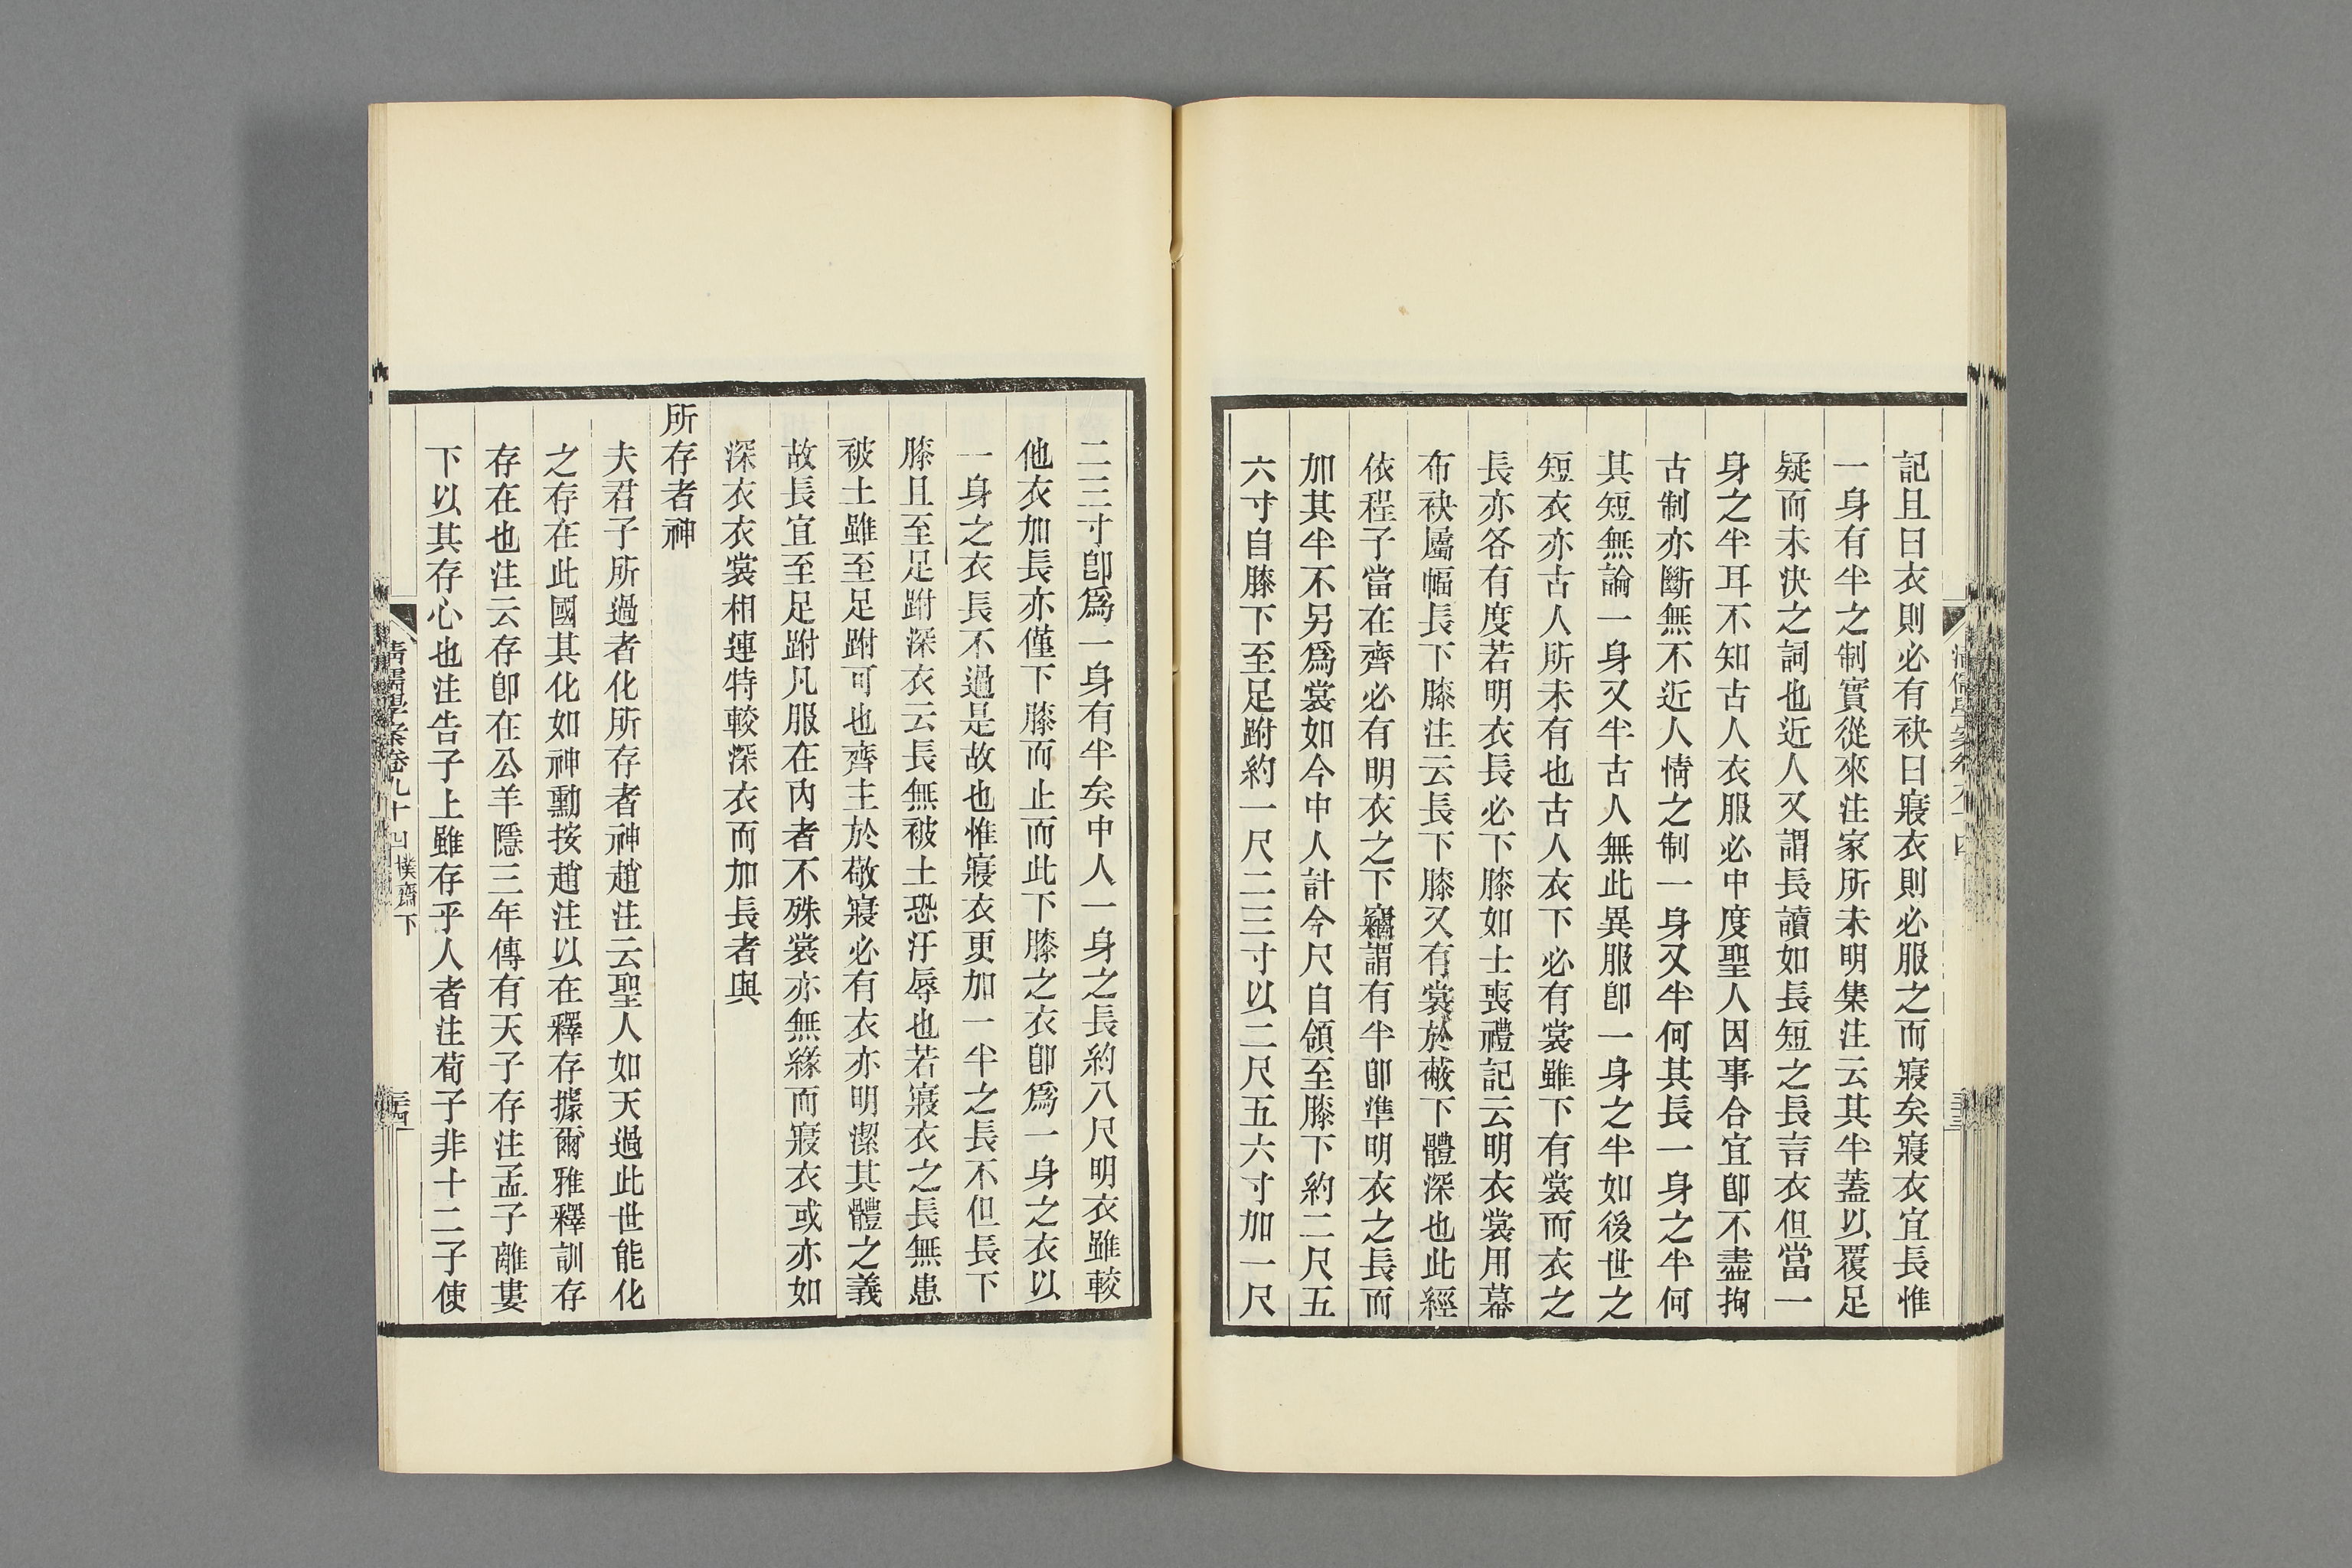 記且曰衣則必有袂曰寢衣則必服之而寢矣寢衣宜長惟
一身有半之制實從來注家所未明集注云其半蓋以覆足
疑而未決之詞也近人又謂長讀如長短之長言衣但當一
身之半耳不知古人衣服必中度聖人因事合宜卽不盡拘
古制亦斷無不近人情之制一身又半何其長一身之半何
其短無論一身又半古人無此異服卽一身之半如後世之
短衣亦古人所未有也古人衣下必有裳雖下有裳而衣之
長亦各有度若明衣長必下膝如士喪禮記云明衣裳用幕
布袂屬幅長下膝注云長下膝又有裳於蔽下體深也此經
依程子當在齊必有明衣之下竊謂有半卽準明衣之長而
加其半不另爲裳如今中人計今尺自領至膝下約二尺五
六寸自膝下至足跗約一尺二三寸以二尺五六寸加一尺
二三寸卽爲一身有半矣中人一身之長約八尺明衣雖較
他衣加長亦僅下膝而止而此下膝之衣卽爲一身之衣以
一身之衣長不過是故也惟寢衣更加一半之長不但長下
膝且至足跗深衣云長無被土恐汙辱也若寢衣之長無患
被土雖至足跗可也齊主於敬寢必有衣亦明潔其體之義
故長宜至足跗凡服在內者不殊裳亦無緣而寢衣或亦如
深衣衣裳相連特較深衣而加長者與
所存者神
夫君子所過者化所存者神趙注云聖人如天過此世能化
之存在此國其化如神勳按趙注以在釋存據爾雅釋訓存
存在也注云存卽在公羊隱三年傳有天子存注孟子離婁
下以其存心也注告子上雖存乎人者注荀子非十二子使
清儒學案卷九十四 樸齋下
三四